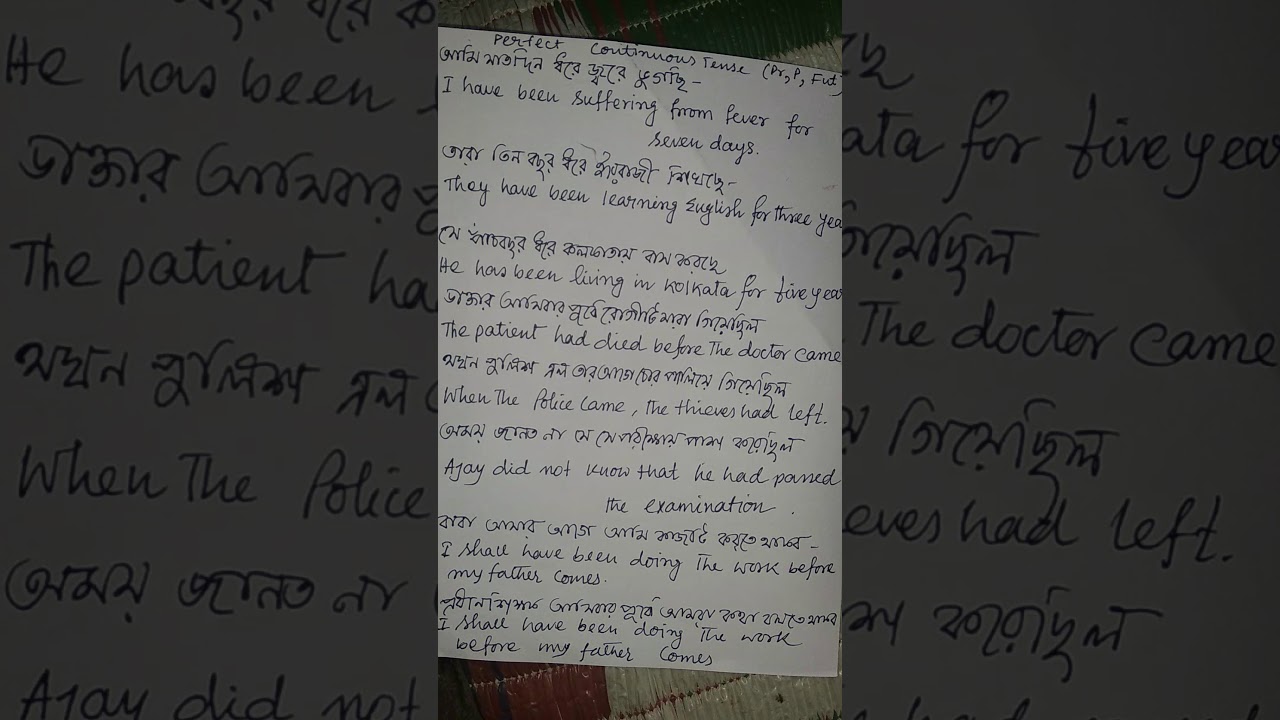 Perfect Continuous Tense (Pr, P, Fut)
আমি সাতদিন ধরে জ্বরে ভুগছি -
I have been suffering from fever for
seven days.
তারা তিন বছর ধরে ইংরাজী শিখছে -
They have been learning English for three yea
সে পাঁচবছর ধরে কলকাতায় বাস করছে
He has been living in Kolkata for five year
ডাক্তার আসিবার পূর্বে রোগীটি মারা গিয়েছিল
The patient had died before The doctor came
যখন পুলিশ এল তার আগে চোর পালিয়ে গিয়েছিল
When The Police came, the thieves had left.
অজয় জানত না যে সে পরীক্ষায় পাশ করেছিল
Ajay did not know that he had passed
the examination.
বাবা আসার আগে আমি কাজটি করতে থাকব -
I shall have been doing The work before
my father comes.
প্রধানশিক্ষক আসিবার পূর্বে আমরা কথা বলতে থাকব
I shall have been doing The work
before my father comes